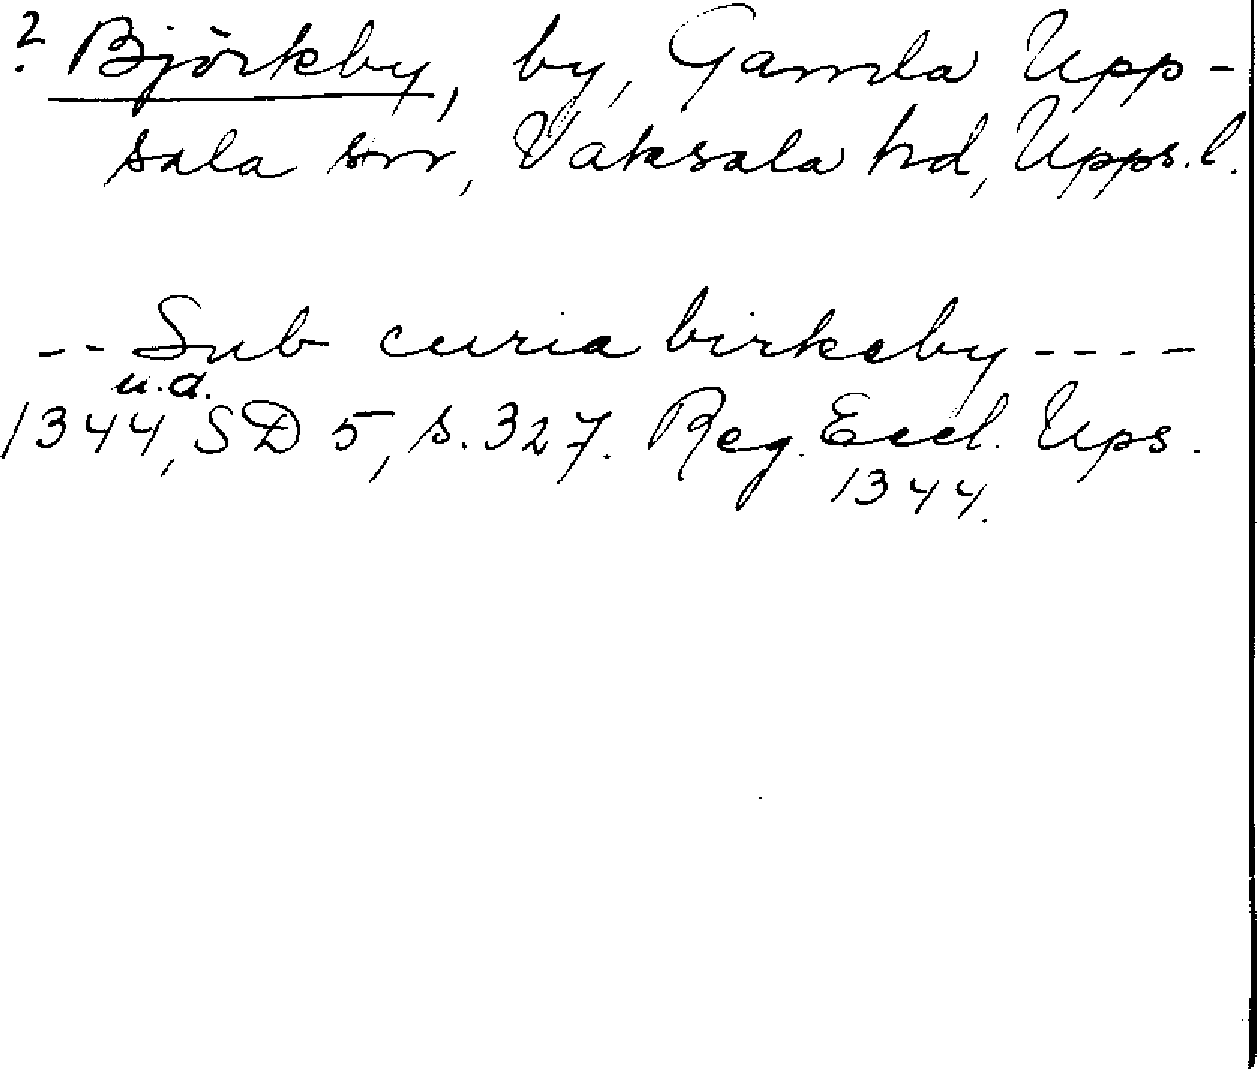 ? Björkby, by, Gamla Upp-
sala sn, Vaksala hd, Upps. l.
-- Sub curia birkeby ----
u.d.
1344, SD 5, s. 327. Reg. Eccl. Ups.
1344.